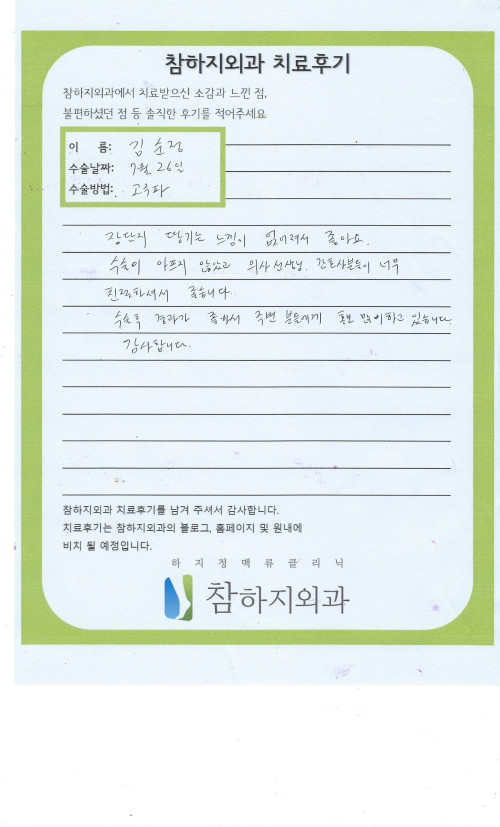 참하지외과 치료후기
참하지외과에서 치료받으신 소감과 느낀 점,
불편하셨던 점 등 솔직한 후기를 적어주세요
이 름: 김순정
수술날짜: 7월 26일
수술방법: 고주파
장단지 땅기는 느낌이 없어져서 좋아요.
수술이 아프지 않았고 의사선생님, 간호사분들이 너무
친절하셔서 좋습니다.
수술후 경과가 좋아서 주변 분들에게 홍보 많이하고 있습니다.
감사합니다.
참하지외과 치료후기를 남겨 주셔서 감사합니다.
치료후기는 참하지외과의 블로그, 홈페이지 및 원내에
비치 될 예정입니다.
하지정맥류클리닉
참하지외과